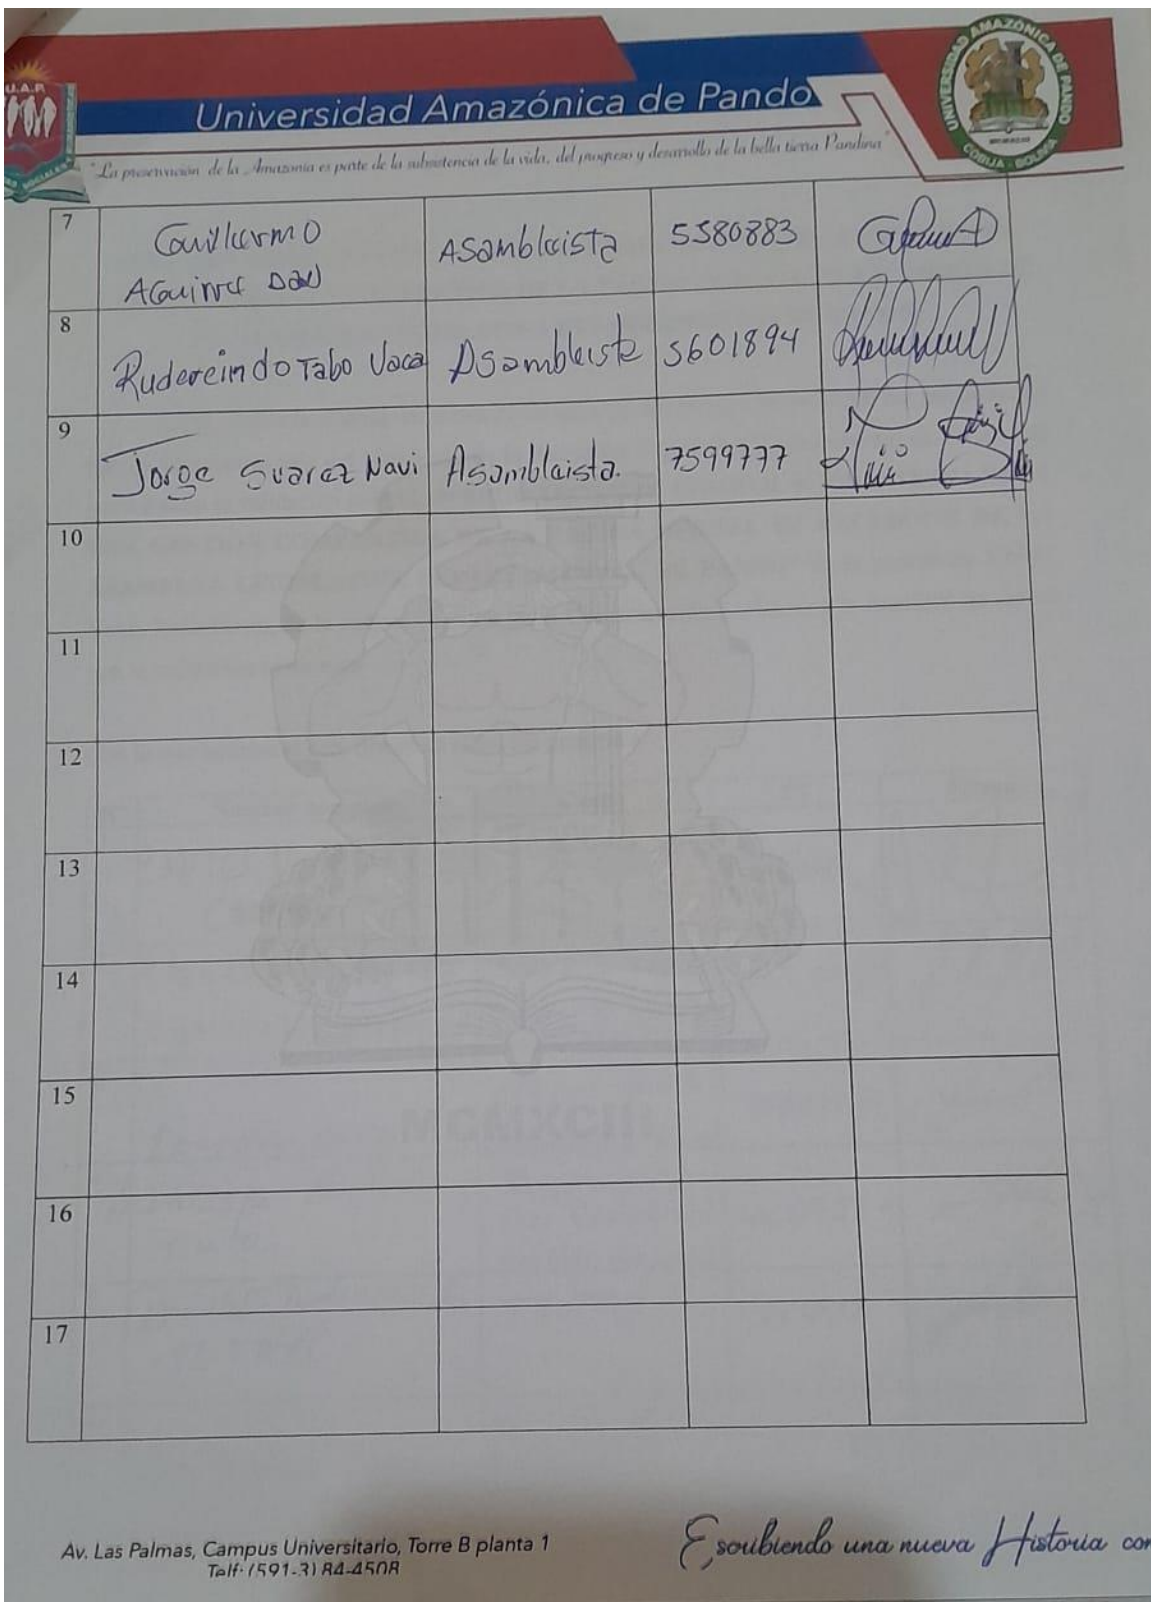 U.A.P.
Universidad Amazónica de Pando
UNIVERSIDAD AMAZÓNICA DE PANDO
COBIJA - BOLIVIA
"La preservación de la Amazonia es parte de la subsistencia de la vida, del progreso y desarrollo de la bella tierra Pandina"
7 Guillermo Asambleista 5580883
Aguirre
8 Rudereindo Tabo Vaca Asambleista 5601894
9 Jorge Suarez Navi Asambleista. 7599777
10
11
12
13
14
15
MCMXCIII
16
17
Av. Las Palmas, Campus Universitario, Torre B planta 1
Telf: (591-3) 84-4508
Escribiendo una nueva Historia con